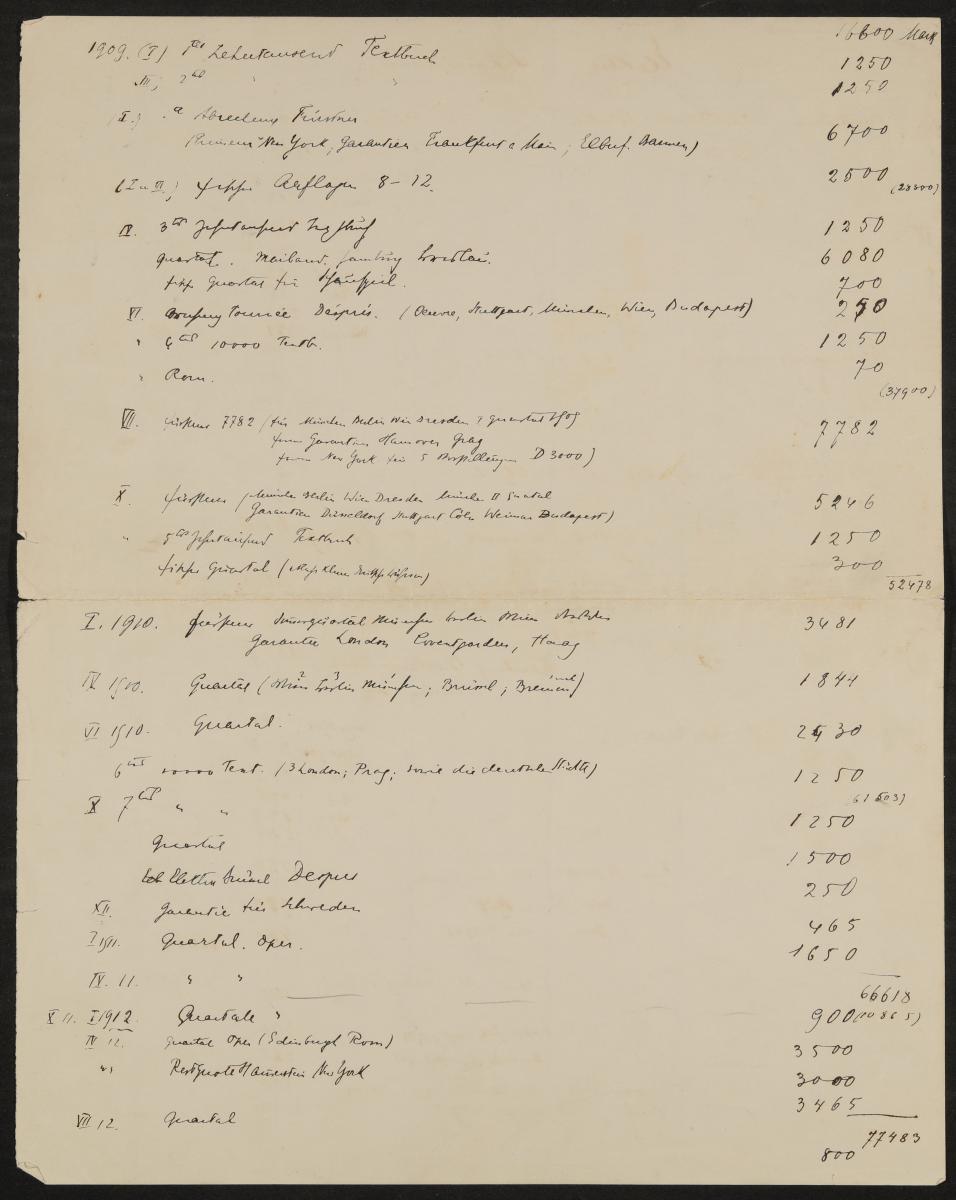 16600 Mark
1909. (I) 1tes Zehntausend Textbuch 1250
III, 2tes " " 1250
II.) Abrechnung Fürstner
New York, Garantien Frankfurt a Main, Elberf. Barmen) 6700
(I u II.) Fischer Auflagen 8–12. 2500 (23300)
IV. 3tes Zehntausend 1250
Quartal. Mailand, Hamburg Breslau. 6080
Fischer Quartal für Schauspiel. 700
VI. Tournée Desprès. (Oeuvre, Stuttgart, München, Wien, Budapest) 250
" 4tes 10000 Textb. 1250
" Rom. 70
(37900)
VII. Fürstner 7782 (für München Berlin Wien Dresden
ferner Garantien Hannover Prag
ferner New York für 5 Vorstellungen D 3000) 7782
X. Fürstner (München Berlin Wien Dresden München II Quartal
Garantien Düsseldorf Stuttgart Cöln Weimar Budapest) 5246
" 5tes Zehntausend Textbuch 1250
Fischer Quartal 300
52478
I. 1910. Fürstner
Garantie London Coventgarden, Haag 3481
IV 1910. Quartal (Wien Berlin München; Brüssel; Bremen) 1844
VI 1910. Quartal. 2430
6tes 10000 Text. (3 London; Prag; sowie die deutschen Städte) 1250
(61503)
X 7tes " " 1250
Quartal 1500
Elektra Brüssel Desprès 250
XII. Garantie für Schweden 465
I 1911. Quartal. Oper. 1650
IV. 11. " "
66618
X 11. I 1912. Quartale " 900 (10865)
IV 12. Quartal Oper (Edinburgh Rom) 3500
" " Restquote Hammerstein New York 3000
3465
VII 12. Quartal
77483
800